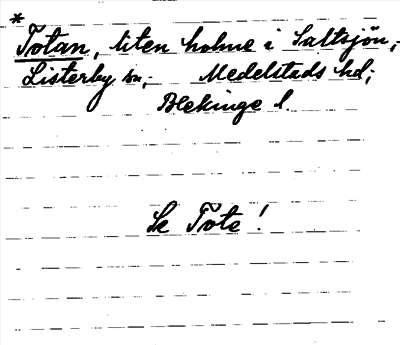 * Totan, liten holme i Saltsjön,
Listerby sn, Medelstads hd,
Blekinge l.
Se Tote!